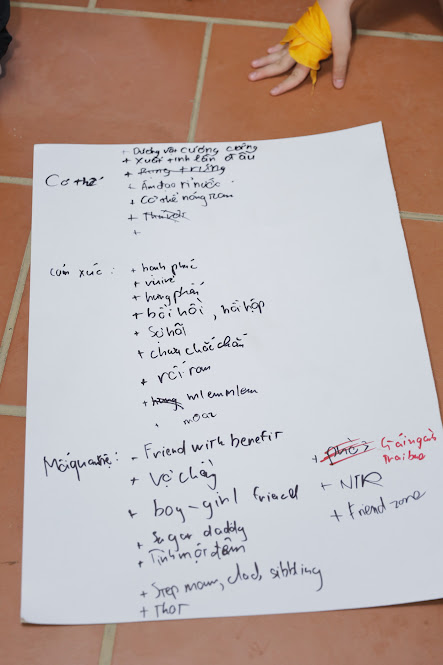 Cơ thể
+ Dương vật cương cứng
+ Xuất tinh lần đầu
+ Rụng trứng
+ Âm đạo rỉ nước
+ Cơ thể nóng ran
+
+
Cảm xúc :
+ hạnh phúc
+ vui vẻ
+ hưng phấn
+ bồi hồi , hồi hộp
+ Sợ hãi
+ chưa chắc chắn
+ rối ren
+ mlem mlem
Mối quan hệ :
- Friend with benefit
+ Vợ chồng
+ boy - girl friend
+ Sugar daddy
+ Tình một đêm
+ Step mom, dad, sibbling
+ Thot
+ phò
Gái ngành
trai bao
+ NTR
+ Friend zone